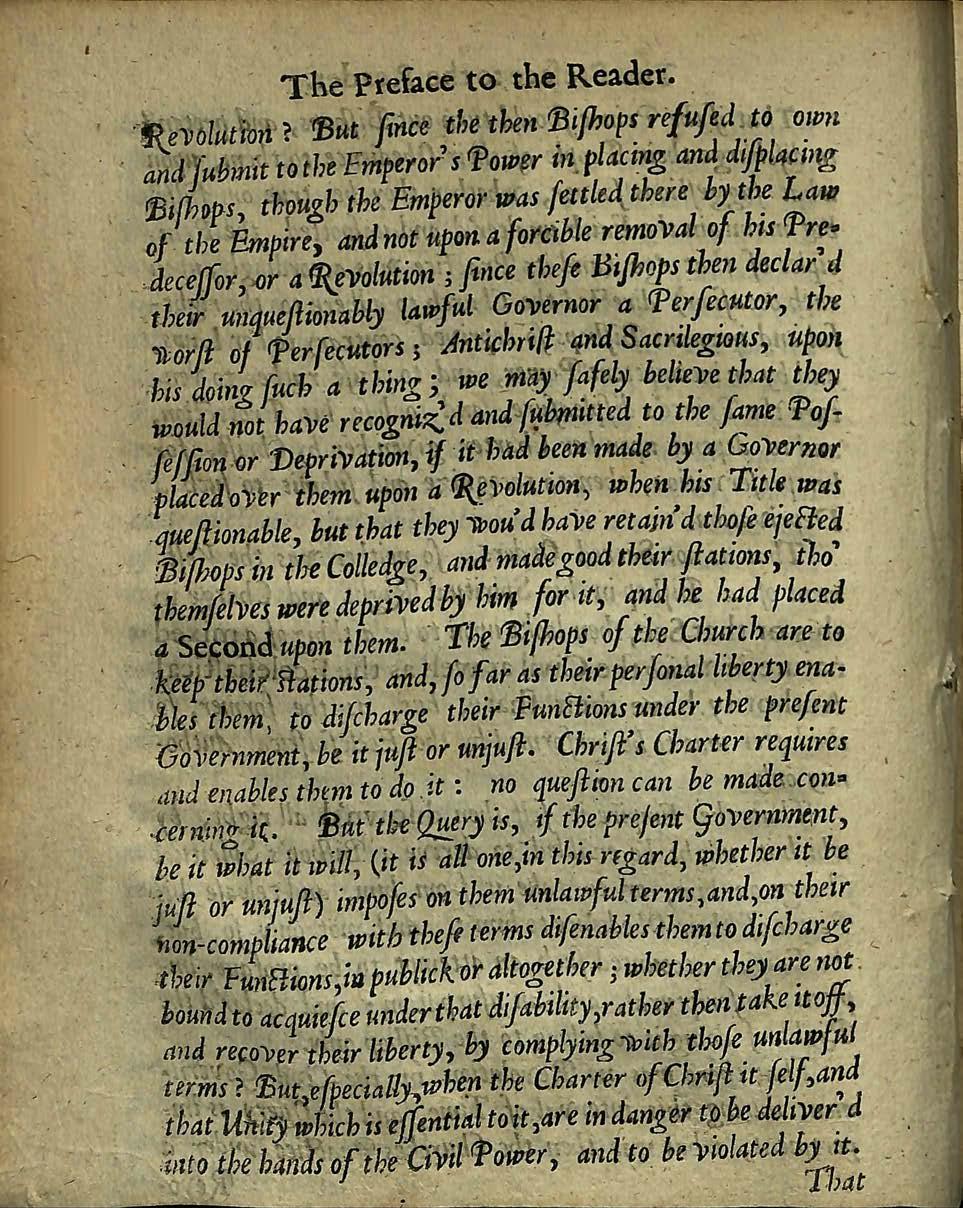 The Preface to the Reader.
Revolution? But ſince the then Biſhops refuſed to own
and ſubmit to the Emperor's Power in placing and diſplacing
Biſhops, though the Emperor was ſettled there by the Law
of the Empire, and not upon a forcible removal of his Pre-
deceſſor, or a Revolution; ſince theſe Biſhops then declar'd
their unqueſtionably lawful Governor a Perſecutor, the
worſt of Perſecutors; Antichriſt and Sacrilegious, upon
his doing ſuch a thing; we may ſafely believe that they
would not have recogniz'd and ſubmitted to the ſame Poſ-
ſeſſion or Deprivation, if it had been made by a Governor
placed over them upon a Revolution, when his Title was
queſtionable, but that they wou'd have retain'd thoſe ejected
Biſhops in the Colledge, and made good their ſtations, tho'
themſelves were deprived by him for it, and he had placed
a Second upon them. The Biſhops of the Church are to
keep their Stations, and, ſo far as their perſonal liberty ena-
bles them, to diſcharge their Functions under the preſent
Government, be it juſt or unjuſt. Chriſt's Charter requires
and enables them to do it: no queſtion can be made con-
cerning it. But the Query is, if the preſent Government,
be it what it will, (it is all one, in this regard, whether it be
juſt or unjuſt) impoſes on them unlawful terms, and, on their
non-compliance with theſe terms diſenables them to diſcharge
their Functions, in publick or altogether; whether they are not
bound to acquieſce under that diſability, rather then take it off,
and recover their liberty, by complying with thoſe unlawful
terms? But, eſpecially, when the Charter of Chriſt it ſelf, and
that Unity which is eſſential to it, are in danger to be deliver'd
into the hands of the Civil Power, and to be violated by it.
That